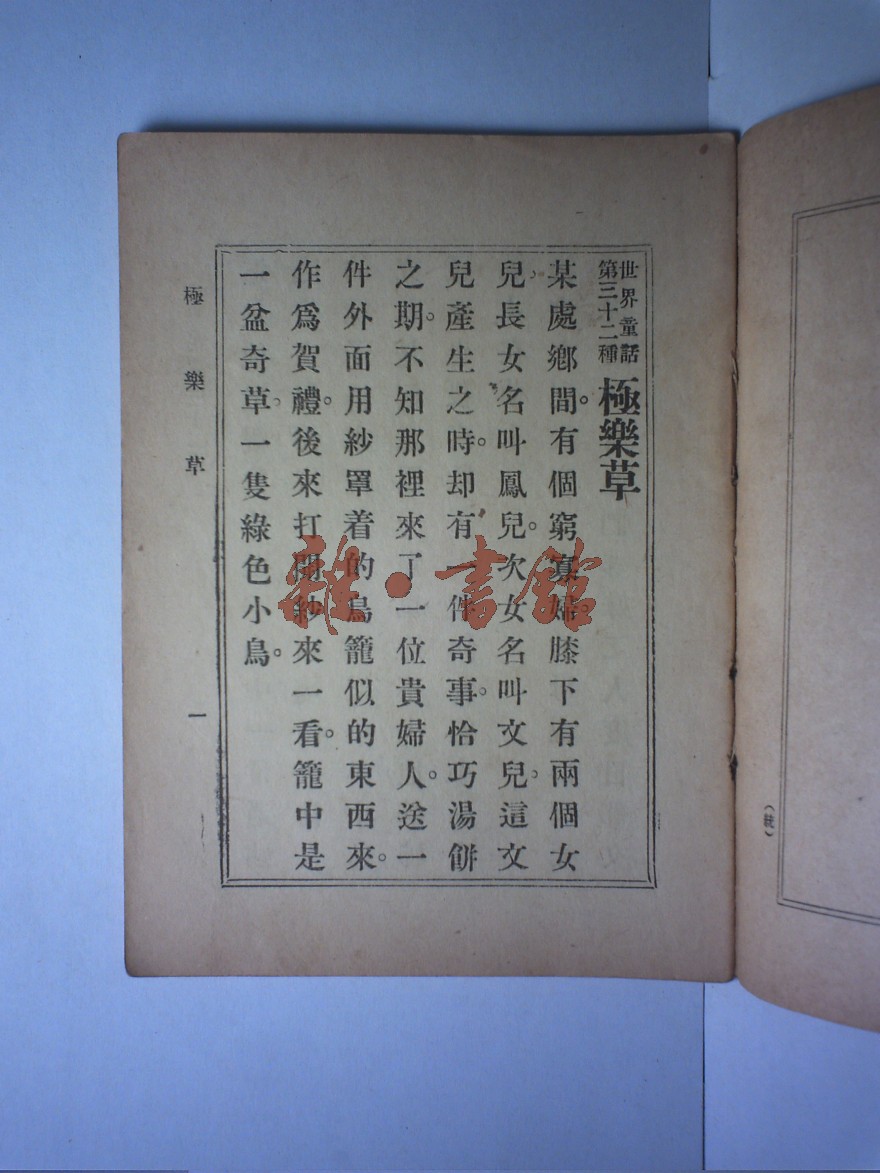 世界童話
第三十二種
極樂草
某處鄉間。有個窮寡婦。膝下有兩個女
兒、長女名叫鳳兒。次女名叫文兒、這文
兒產生之時。却有一件奇事。恰巧湯餅
之期。不知那裡來了一位貴婦人。送一
件外面用紗罩着的鳥籠似的東西來。
作爲賀禮。後來打開紗來一看。籠中是
一盆奇草、一隻綠色小鳥。
極樂草
一
雜·書館